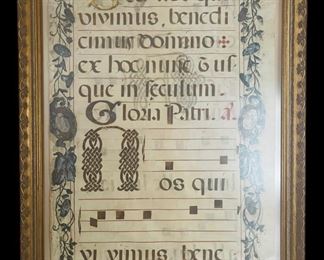 Sed nos qui
vivimus, benedi
cimus domino
ex hoc nunc & us
que in seculum.
Gloria Patri. a.
Nos qui
vi vimus, bene